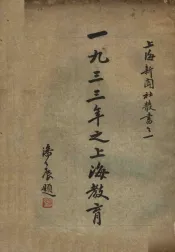 上海新聞社叢書之一
一九三三年之上海教育
題